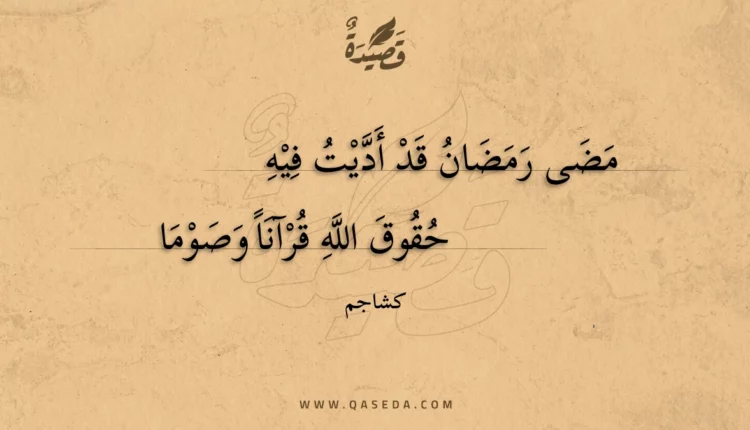 قَصِيْدَةٌ
مَضَى رَمَضَانُ قَدْ أَدَّيْتُ فِيْهِ
حُقُوقَ اللَّهِ قُرْآنَاً وَصَوْمَا
كشاجم
WWW.QASEDA.COM